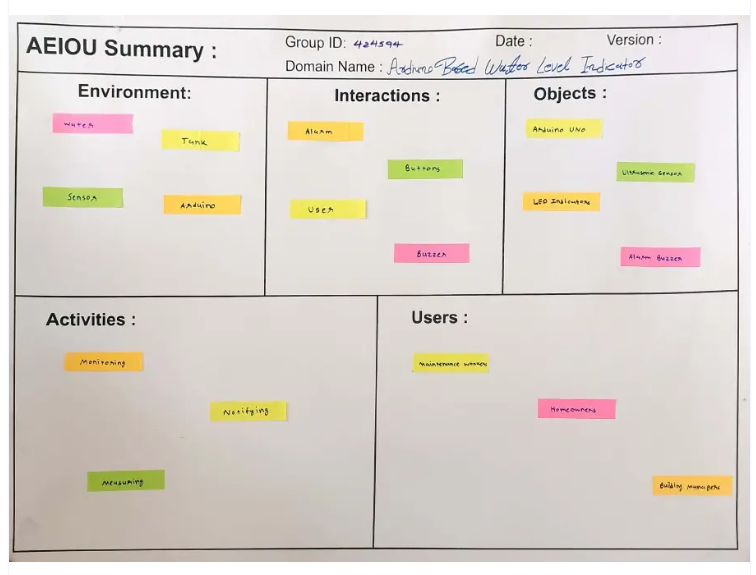 AEIOU Summary :
Group ID: 424594
Date :
Version :
Domain Name : Arduino Based Water Level Indicator
Environment:
Water
Tank
Sensor
Arduino
Interactions :
Alarm
Buttons
User
Buzzer
Objects :
Arduino UNO
Ultrasonic Sensor
LED Indicators
Alarm Buzzer
Activities :
Monitoring
Notifying
Measuring
Users :
Maintenance workers
Homeowners
Building Managers